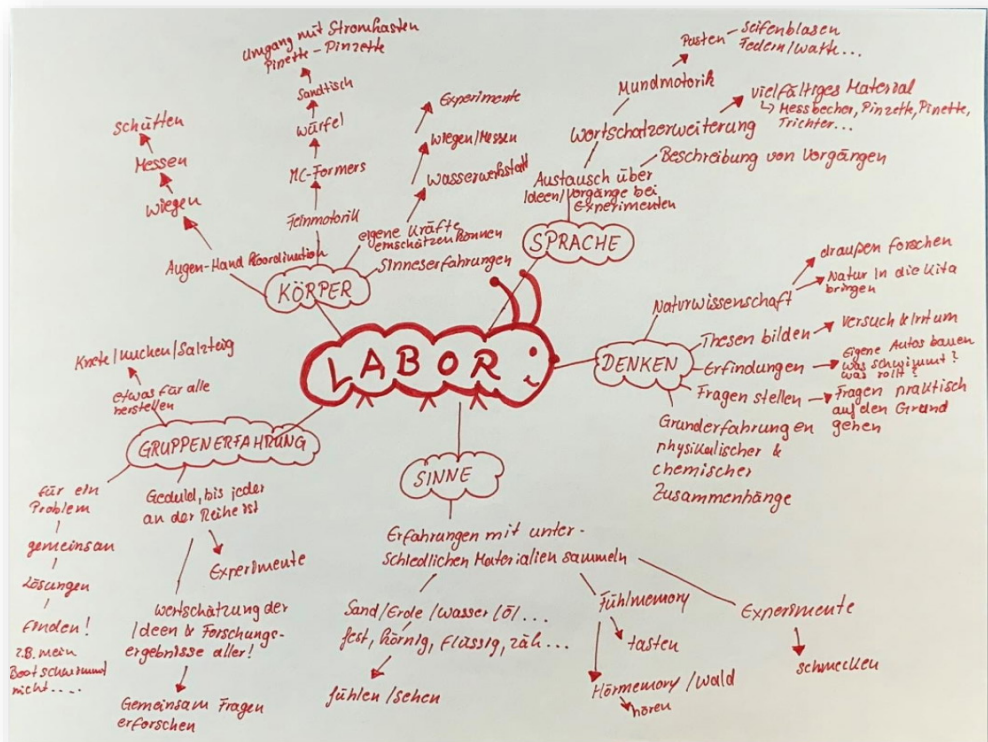 LABOR
KÖRPER
Augen-Hand Koordination
Wiegen
Messen
Schütten
Feinmotorik
MC-Formers
Würfel
Sandtisch
Umgang mit Stromkasten
Pinette - Pinzette
eigene Kräfte
einschätzen können
Wasserwerkstatt
Wiegen/Messen
Experimente
Sinneserfahrungen
SPRACHE
Austausch über
Ideen/Vorgänge bei
Experimenten
Wortschatzerweiterung
Mundmotorik
Pusten - Seifenblasen
Federn/Watte...
vielfältiges Material
↳ Messbecher, Pinzette, Pinette,
Trichter...
Beschreibung von Vorgängen
DENKEN
Naturwissenschaft
draußen forschen
Natur in die Kita
bringen
Thesen bilden
Versuch & Irrtum
Erfindungen
Eigene Autos bauen
was schwimmt?
was rollt?
Fragen stellen
Fragen praktisch
auf den Grund
gehen
Grunderfahrungen
physikalischer &
chemischer
Zusammenhänge
SINNE
Erfahrungen mit unter-
schiedlichen Materialien sammeln
Sand/Erde/Wasser/Öl...
fest, körnig, flüssig, zäh...
fühlen/sehen
Fühlmemory
tasten
Hörmemory/Wald
hören
Experimente
schmecken
GRUPPENERFAHRUNG
etwas für alle
herstellen
Knete/Kuchen/Salzteig
für ein
Problem
gemeinsam
Lösungen
finden!
z.B. mein
Boot schwimmt
nicht....
Geduld, bis jeder
an der Reihe ist
Experimente
Wertschätzung der
Ideen & Forschungs-
ergebnisse aller!
Gemeinsam Fragen
erforschen